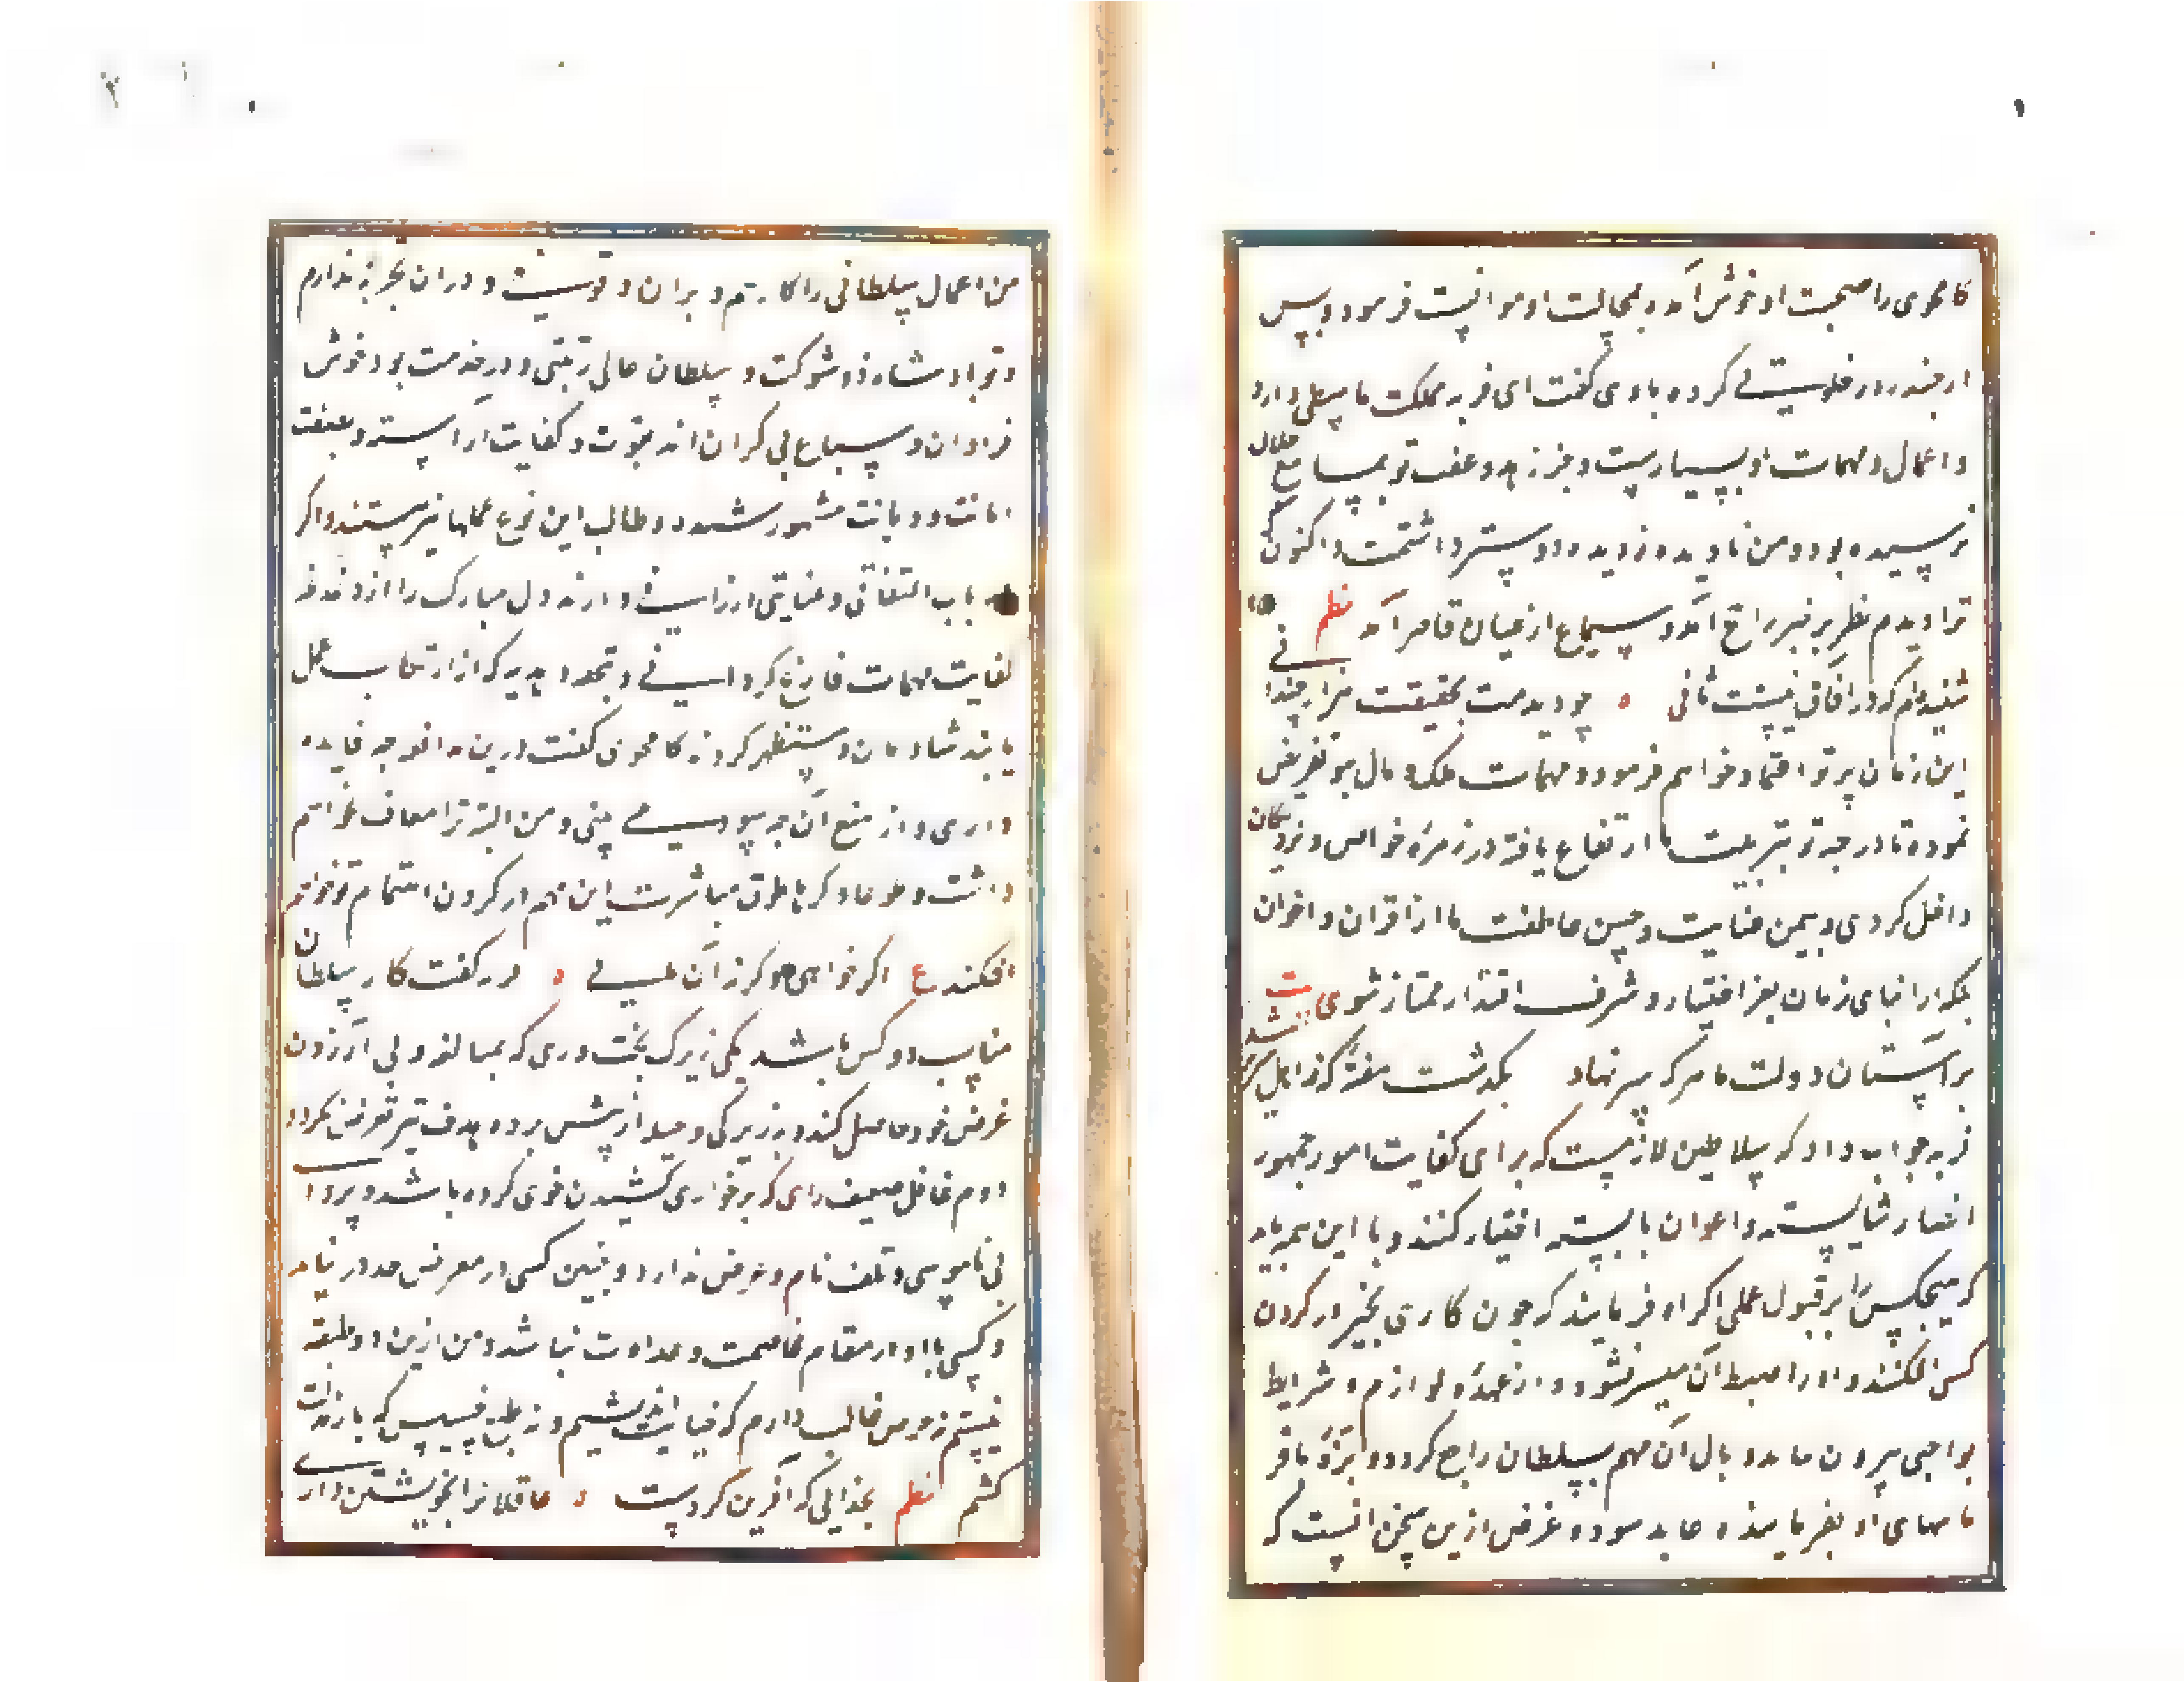 کامجوی را صحبت او خوش آمد و بمجالست او موانست فرمود و پس
از چند روز خلوتی کرده با وی گفت ای فریسه مملکت ما بسطی دارد
و اعمال و مهمات او بسیارست و خبر زهد و عفت تو بمسامع جلال
رسیده بود و من نادیده ترا دیده و دوستر داشتمت و اکنون که
ترا دیدم نظر بر خبر راجح آمد و سماع از عیان قاصر آمد نظم
شنیده‌ام که در آفاق نیست ثانی تو چو دیدمت بحقیقت هزار چندانی
این زمان بر تو اعتماد خواهم فرمود و مهمات ملک و مال بتو تفویض
نموده تا درجه تو بتربیت ما ارتفاع یافته در زمره خواص و نزدیکان
داخل کردی و بیمن عنایت و حسن عاطفت ما از اقران و اخوان
بلکه از ابنای زمان بعز اختیار و شرف اقتدار ممتاز شوی بیت
بر آستان دولت ما هر که سر نهاد بگذشت هفته که ز اهل
فریسه جواب داد که سلاطین لازمست که برای کفایت امور جمهور
انصار شایسته و اعوان بایسته اختیار کنند و با این همه باید
که هیچکس را بر قبول عملی اکراه نفرمایند که چون کاری بجبر در گردن
کسی افکنند و او را ضبط آن میسر نشود و از عهده لوازم و شرایط
بواجبی بیرون نیاید وبال آن مهم بسلطان راجع گردد و بزه
بفرماینده عاید شود و غرض ازین سخن آنست که
من اعمال سلطانی را کارهم و بران وقوفی نیست و دران تجربه ندارم
و تو پادشاه ذو شوکت و سلطان عالی رتبتی و در خدمت تو وحوش
فراوان و سباع بی کران اند بقوت و کفایت آراسته و بعفت
امانت و دیانت مشهور شده و طالب این نوع عملها نیز هستند و اگر
باب التفاتی و عنایتی ارزانی دارند دل مبارک را از دغدغه
کفایت مهمات فارغ گردانند و بتحف و هدایا که از ارتکاب عمل
یابند شادمان و مستظهر گردند کامجوی گفت درین مدافعه چه فایده
داری و از منع آن چه سود می بینی و من البته ترا معاف نخواهم
داشت و طوعا و کرها طوق مباشرت این مهم در گردن اهتمام تو خواهم
افکند ع اگر خواهی و گر نه آن مایی فریسه گفت کار سلطان
مناسب دو کس باشد یکی زیرک سخت روی که بمبالغه و بی آزرمی
غرض خود حاصل کند و بزیرکی و حیله از پیش برده هدف تیر تعرض نگردد
دوم غافل ضعیف رای که بر خواری کشیدن خوی کرده باشد و پروای
بی ناموسی و تلف نام و عرض ندارد و چنین کسی در معرض حسد در نیاید
و کسی با او در مقام مخاصمت و عداوت نباشد و من ازین دو طبقه
نیستم نه حرص غالب دارم که خیانت اندیشم و نه طبع خسیس که بار مذلت
کشم نظم بخدایی که آفرین کردست عاقلانرا بخویشتن داری